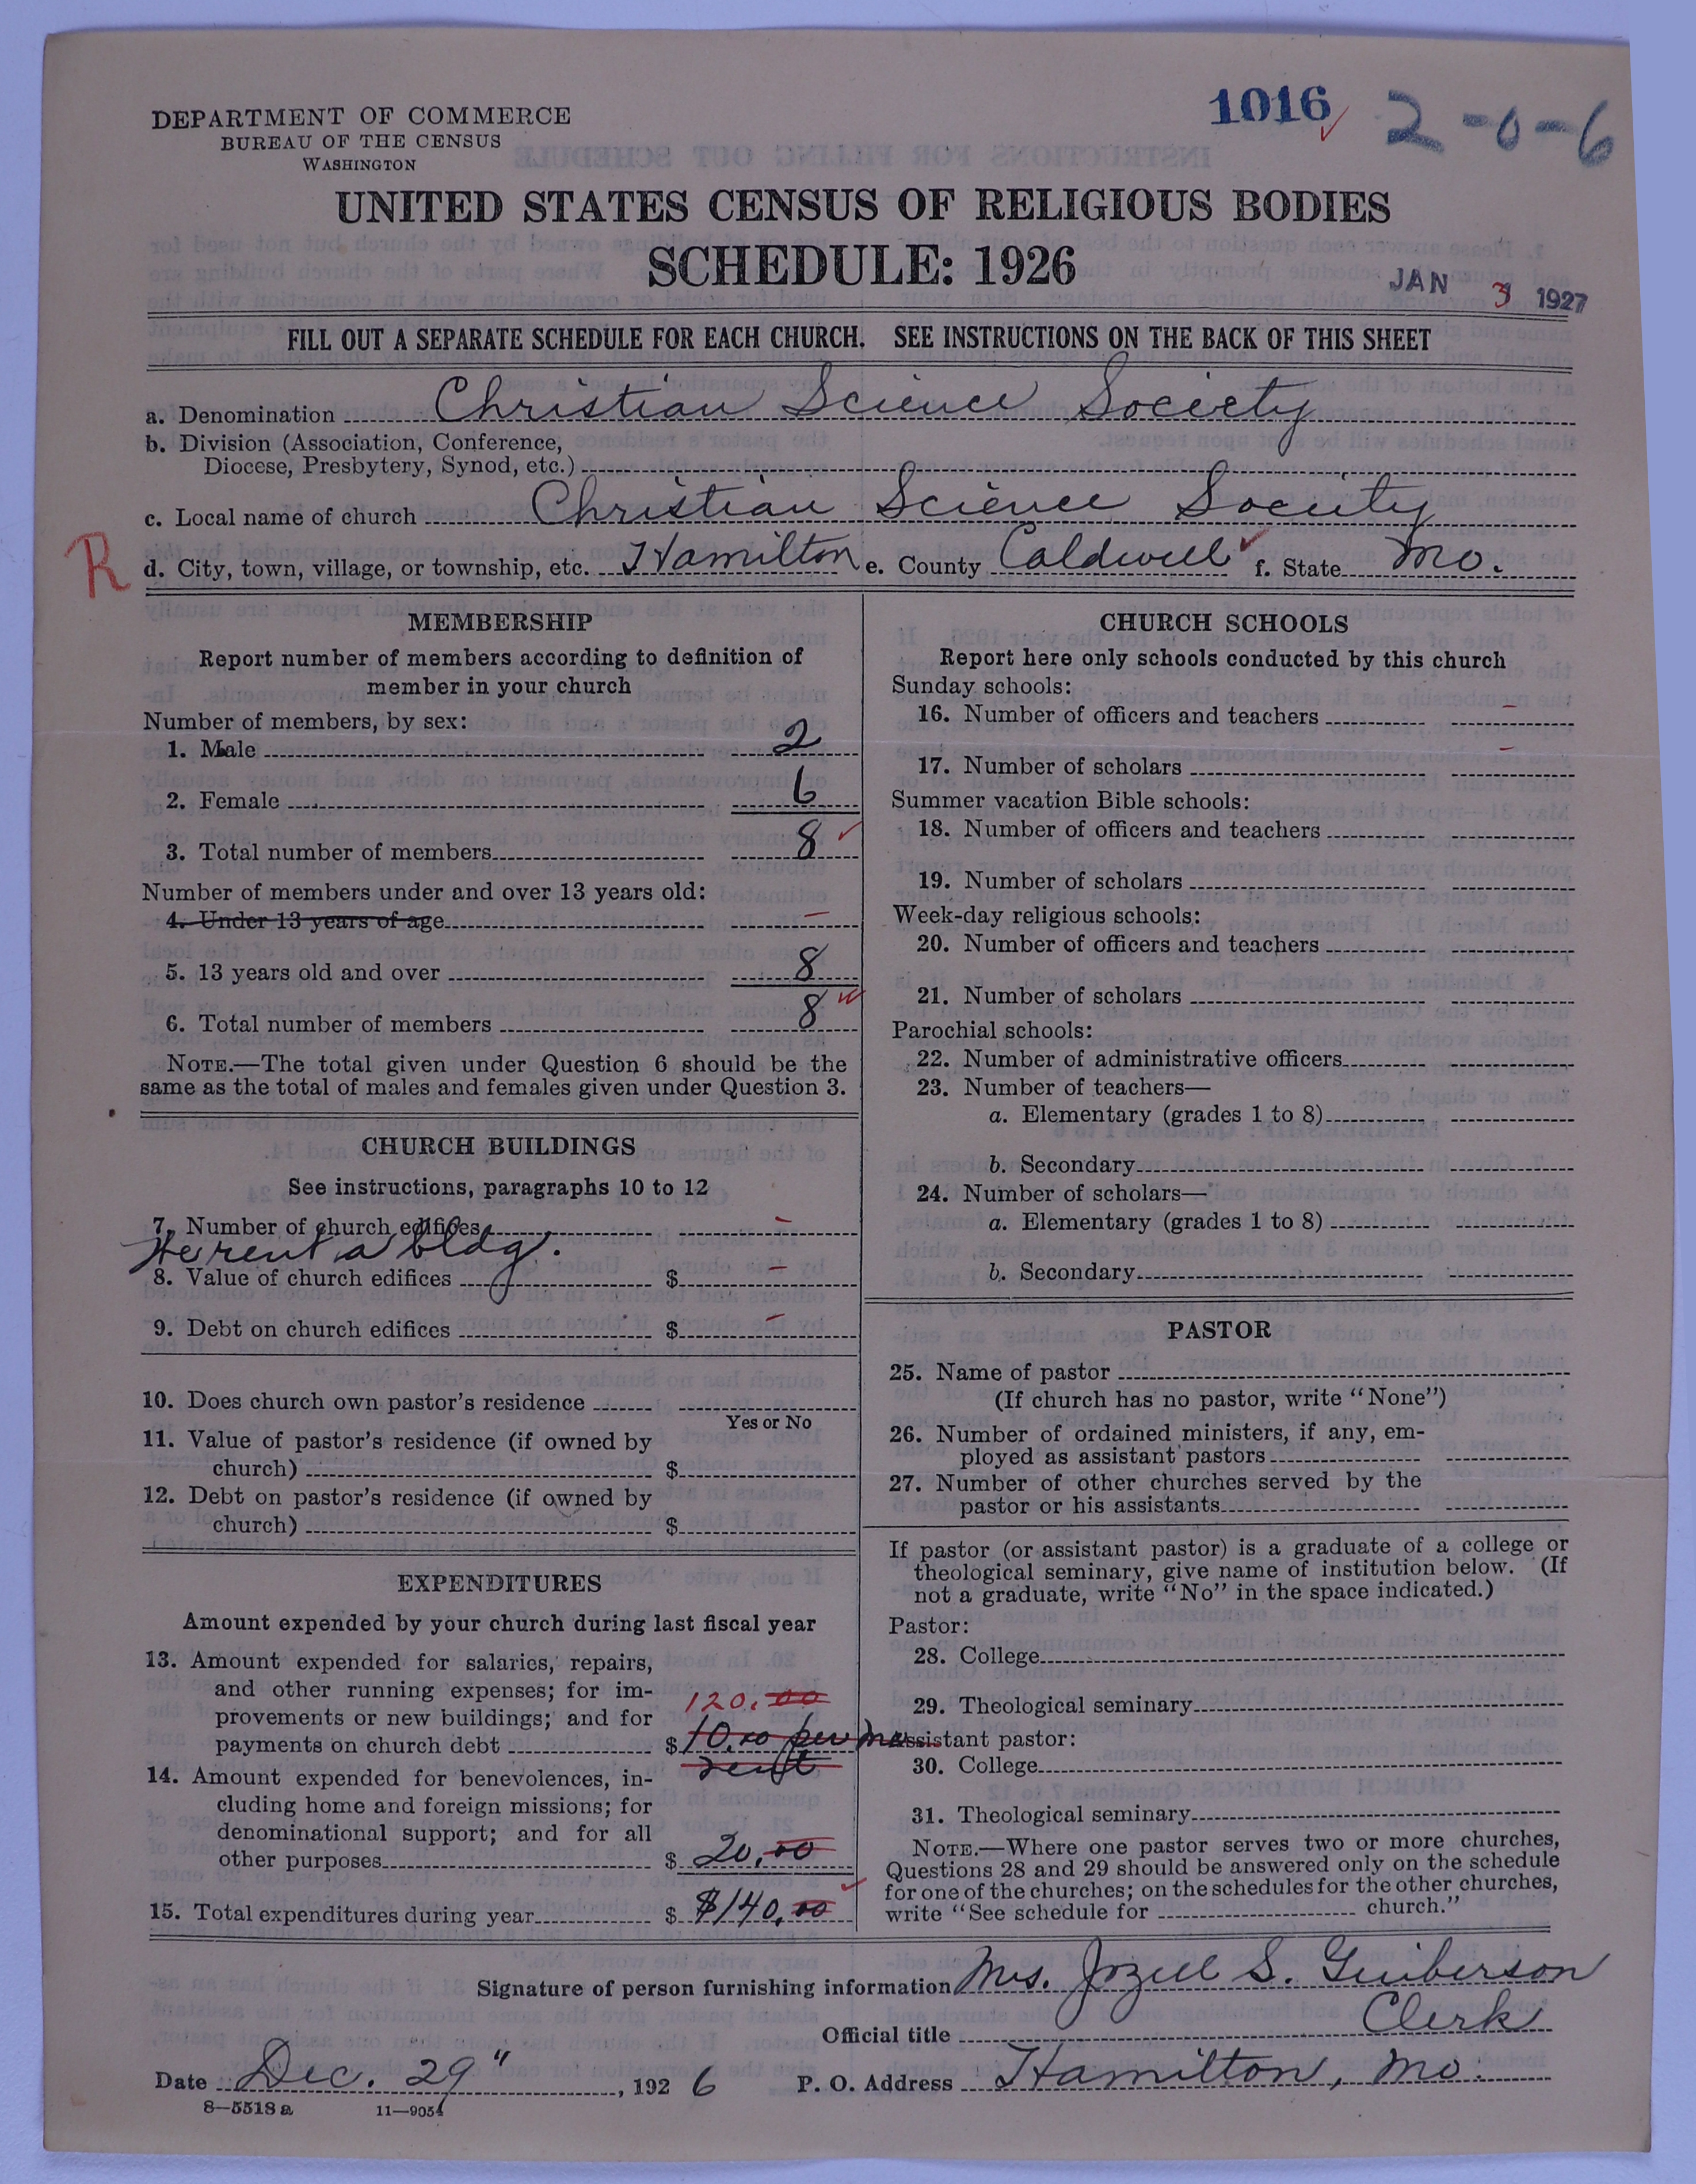 DEPARTMENT OF COMMERCE
BUREAU OF THE CENSUS
WASHINGTON
1016
2-0-6
UNITED STATES CENSUS OF RELIGIOUS BODIES
SCHEDULE: 1926
JAN 3 1927
FILL OUT A SEPARATE SCHEDULE FOR EACH CHURCH. SEE INSTRUCTIONS ON THE BACK OF THIS SHEET
a. Denomination Christian Science Society
b. Division (Association, Conference,
Diocese, Presbytery, Synod, etc.)
c. Local name of church Christian Science Society
R
d. City, town, village, or township, etc. Hamilton e. County Caldwell f. State Mo.
MEMBERSHIP
Report number of members according to definition of
member in your church
Number of members, by sex:
1. Male 2
2. Female 6
3. Total number of members 8
Number of members under and over 13 years old:
4. Under 13 years of age –
5. 13 years old and over 8
6. Total number of members 8
NOTE.—The total given under Question 6 should be the
same as the total of males and females given under Question 3.
CHURCH BUILDINGS
See instructions, paragraphs 10 to 12
7. Number of church edifices –
We rent a bldg.
8. Value of church edifices $ –
9. Debt on church edifices $ –
10. Does church own pastor's residence
Yes or No
11. Value of pastor's residence (if owned by
church) $
12. Debt on pastor's residence (if owned by
church) $
EXPENDITURES
Amount expended by your church during last fiscal year
13. Amount expended for salaries, repairs,
and other running expenses; for im-
provements or new buildings; and for
120.00
payments on church debt $ 10.00 per mo
rent
14. Amount expended for benevolences, in-
cluding home and foreign missions; for
denominational support; and for all
other purposes $ 20.00
15. Total expenditures during year $ $140.00
CHURCH SCHOOLS
Report here only schools conducted by this church
Sunday schools:
16. Number of officers and teachers –
17. Number of scholars –
Summer vacation Bible schools:
18. Number of officers and teachers
19. Number of scholars
Week-day religious schools:
20. Number of officers and teachers
21. Number of scholars
Parochial schools:
22. Number of administrative officers
23. Number of teachers—
a. Elementary (grades 1 to 8)
b. Secondary
24. Number of scholars—
a. Elementary (grades 1 to 8)
b. Secondary
PASTOR
25. Name of pastor
(If church has no pastor, write "None")
26. Number of ordained ministers, if any, em-
ployed as assistant pastors
27. Number of other churches served by the
pastor or his assistants
If pastor (or assistant pastor) is a graduate of a college or
theological seminary, give name of institution below. (If
not a graduate, write "No" in the space indicated.)
Pastor:
28. College
29. Theological seminary
Assistant pastor:
30. College
31. Theological seminary
NOTE.—Where one pastor serves two or more churches,
Questions 28 and 29 should be answered only on the schedule
for one of the churches; on the schedules for the other churches,
write "See schedule for church."
Signature of person furnishing information Mrs. Jozell S. Guiberson
Official title Clerk
Date Dec. 29", 1926 P. O. Address Hamilton, Mo.
8—5518 a 11—9054